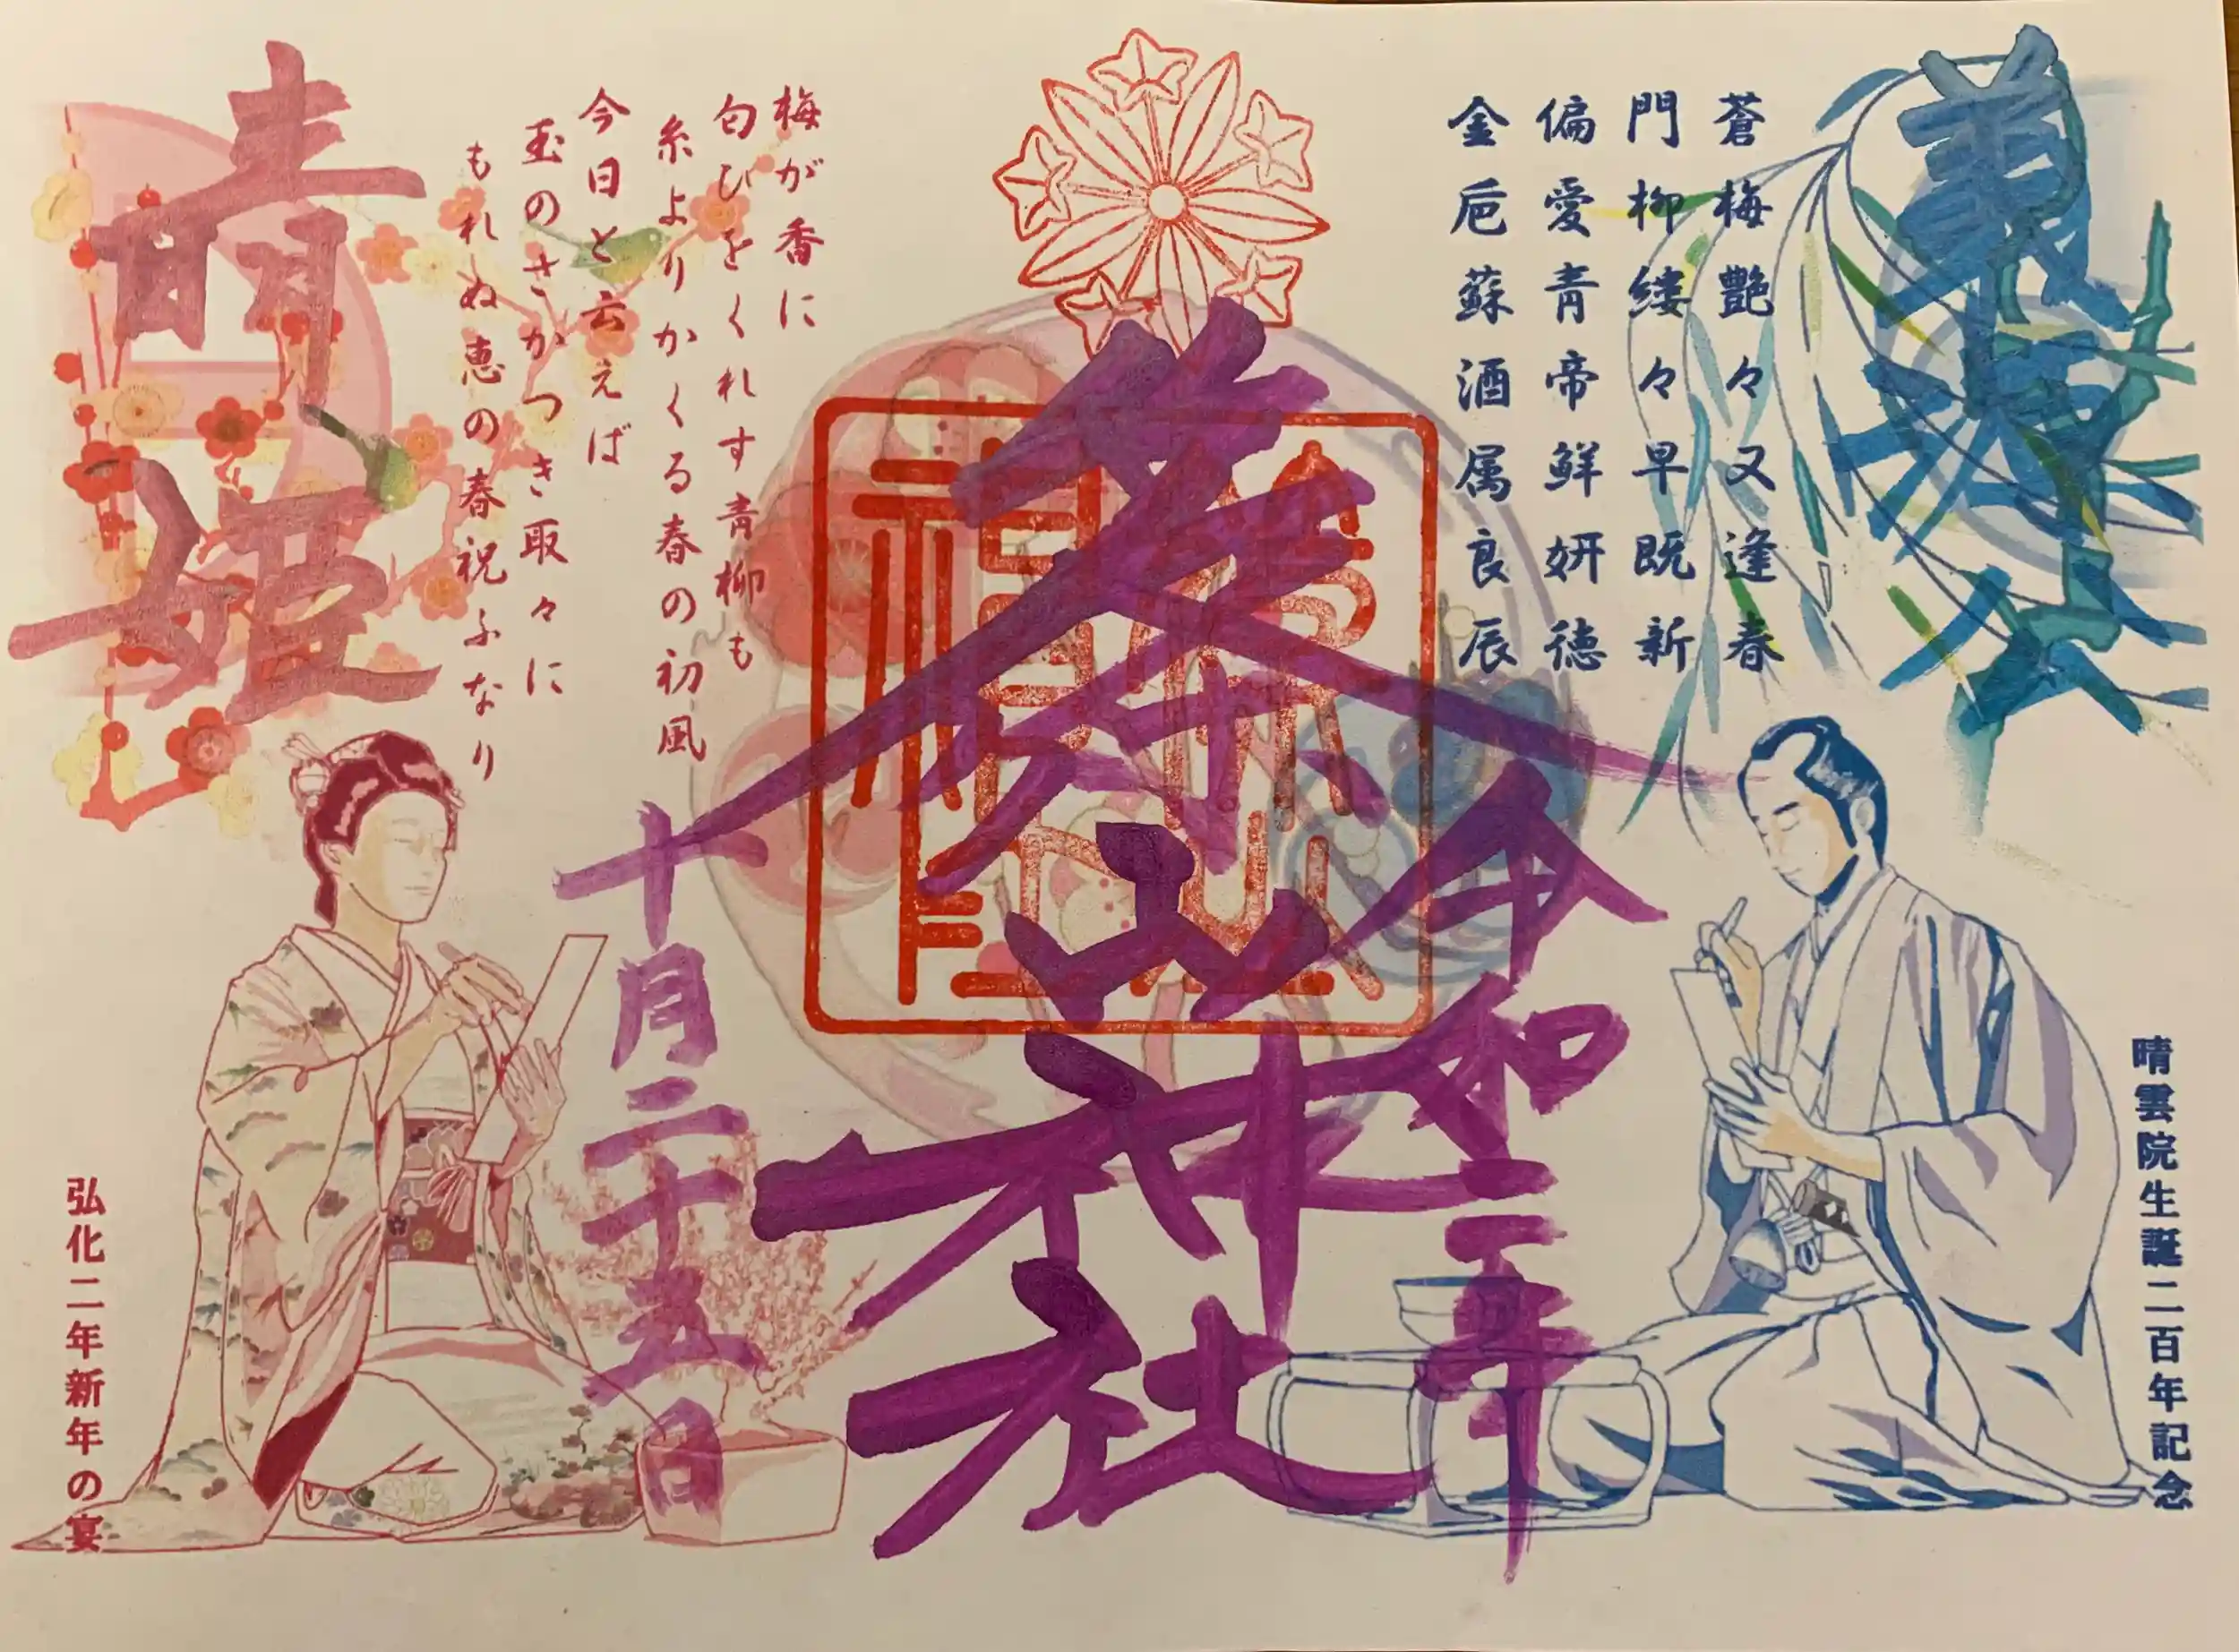 蒼梅艶々又逢春
門柳縷々早既新
偏愛青帝鮮妍徳
金巵蘇酒属良辰
晴雲院生誕二百年記念
篠山神社
令和二年
十月二十五日
梅が香に
匂ひをくれす青柳も
糸よりかくる春の初風
今日と云えば
玉のさかつき取々に
もれぬ恵の春祝ふなり
晴姫
弘化二年新年の宴